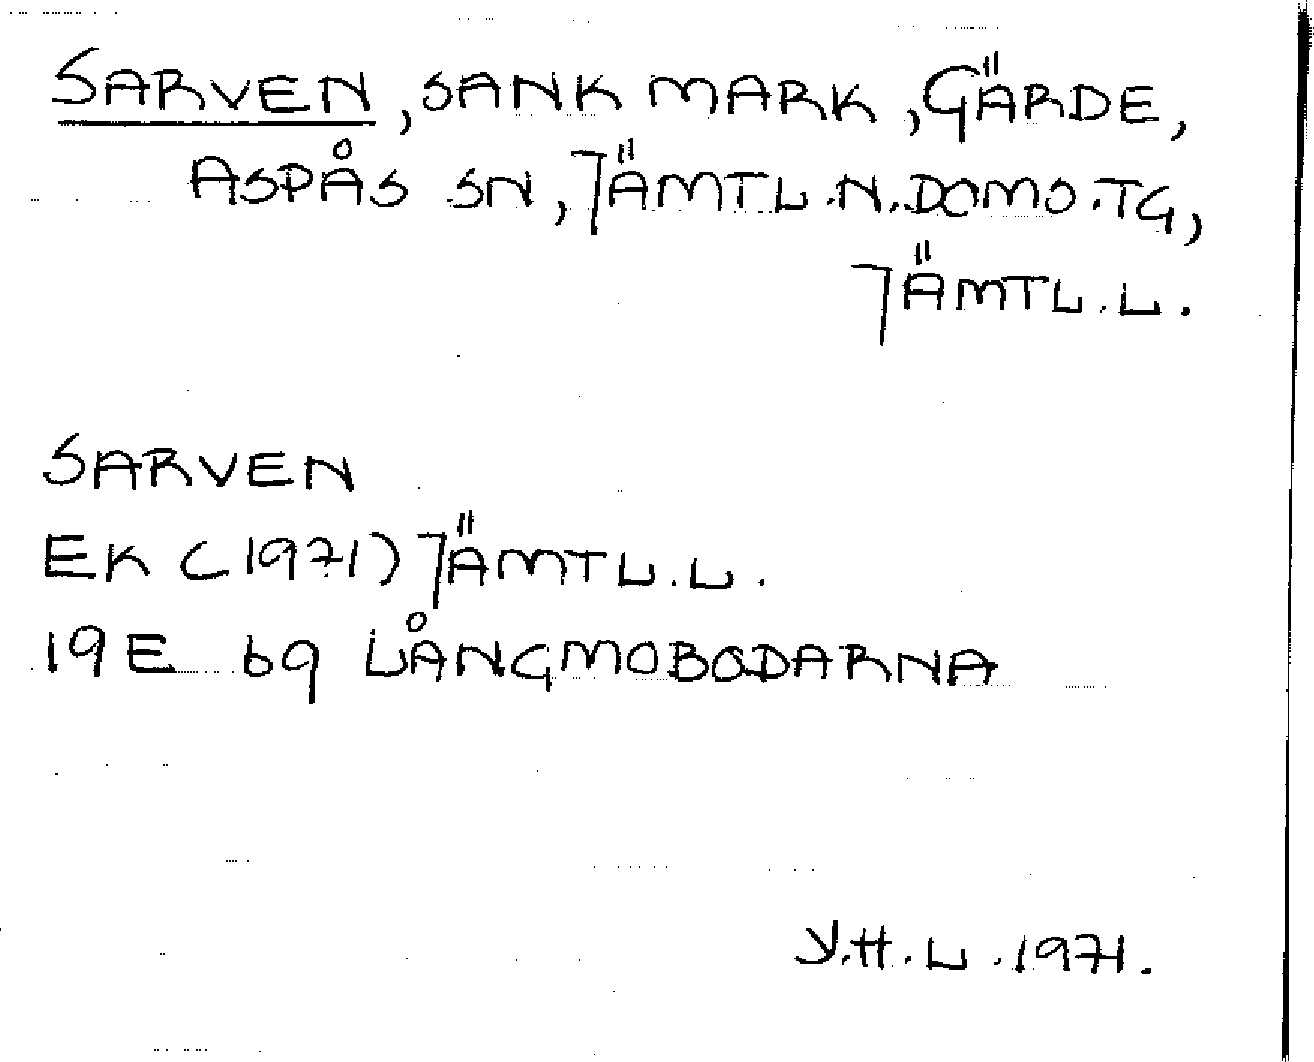 SARVEN, SANK MARK, GÄRDE,
ASPÅS SN, JÄMTL.N.DOMS.TG,
JÄMTL.L.
SARVEN
EK (1971) JÄMTL.L.
19E 69 LÅNGMOBODARNA
Y.H.L. 1971.